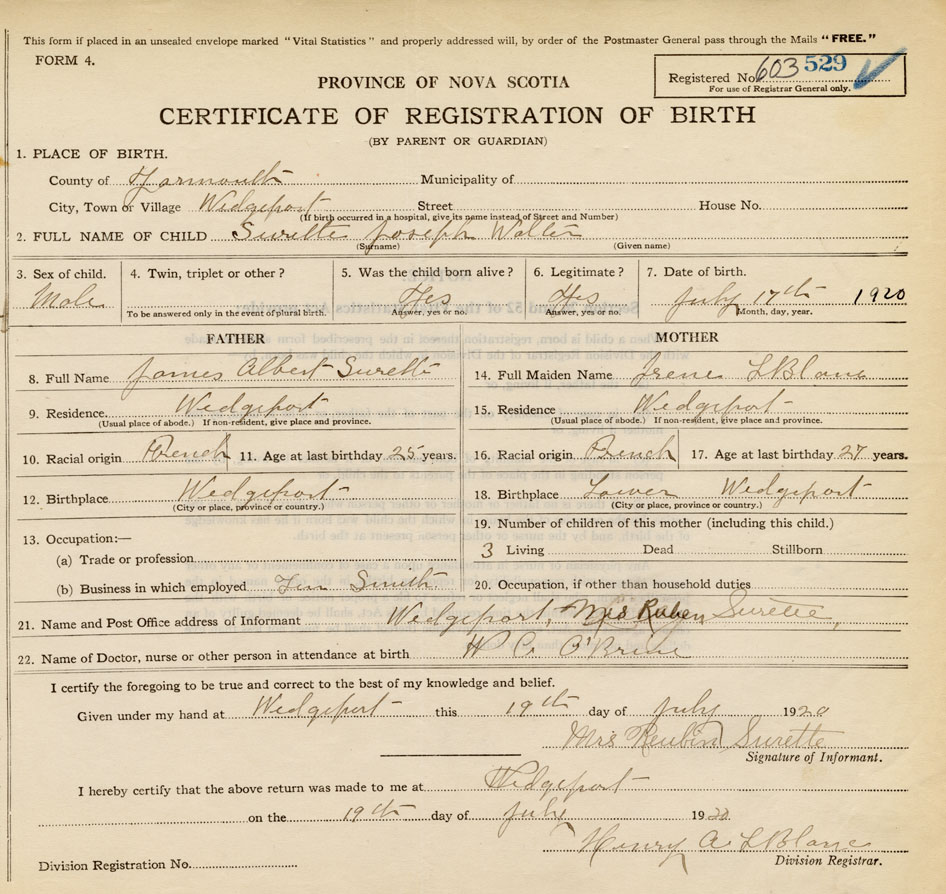 This form if placed in an unsealed envelope marked "Vital Statistics" and properly addressed will, by order of the Postmaster General pass through the Mails "FREE."
FORM 4.
Registered No. 603 529
For use of Registrar General only.
PROVINCE OF NOVA SCOTIA
CERTIFICATE OF REGISTRATION OF BIRTH
(BY PARENT OR GUARDIAN)
1. PLACE OF BIRTH.
County of Yarmouth Municipality of
City, Town or Village Wedgeport Street House No.
(If birth occurred in a hospital, give its name instead of Street and Number)
2. FULL NAME OF CHILD Surette Joseph Walter
(Surname) (Given name)
3. Sex of child. 4. Twin, triplet or other? 5. Was the child born alive? 6. Legitimate? 7. Date of birth.
Male Yes Yes July 17th 1920
To be answered only in the event of plural birth. Answer, yes or no. Answer, yes or no. Month, day, year.
FATHER MOTHER
8. Full Name James Albert Surette 14. Full Maiden Name Irene LBlanc
9. Residence. Wedgeport 15. Residence Wedgeport
(Usual place of abode.) If non-resident, give place and province. (Usual place of abode.) If non-resident, give place and province.
10. Racial origin French 11. Age at last birthday 25 years. 16. Racial origin French 17. Age at last birthday 27 years.
12. Birthplace Wedgeport 18. Birthplace Lower Wedgeport
(City or place, province or country.) (City or place, province or country.)
13. Occupation:— 19. Number of children of this mother (including this child.)
(a) Trade or profession 3 Living Dead Stillborn
(b) Business in which employed Tin Smith 20. Occupation, if other than household duties
21. Name and Post Office address of Informant Wedgeport, Mrs Ruben Surette,
22. Name of Doctor, nurse or other person in attendance at birth W C. O'Brien
I certify the foregoing to be true and correct to the best of my knowledge and belief.
Given under my hand at Wedgeport this 19th day of July 1920
Mrs Reubin Surette
Signature of Informant.
I hereby certify that the above return was made to me at Wedgeport
on the 19th day of July 1920
Henry A. LBlanc
Division Registrar.
Division Registration No.